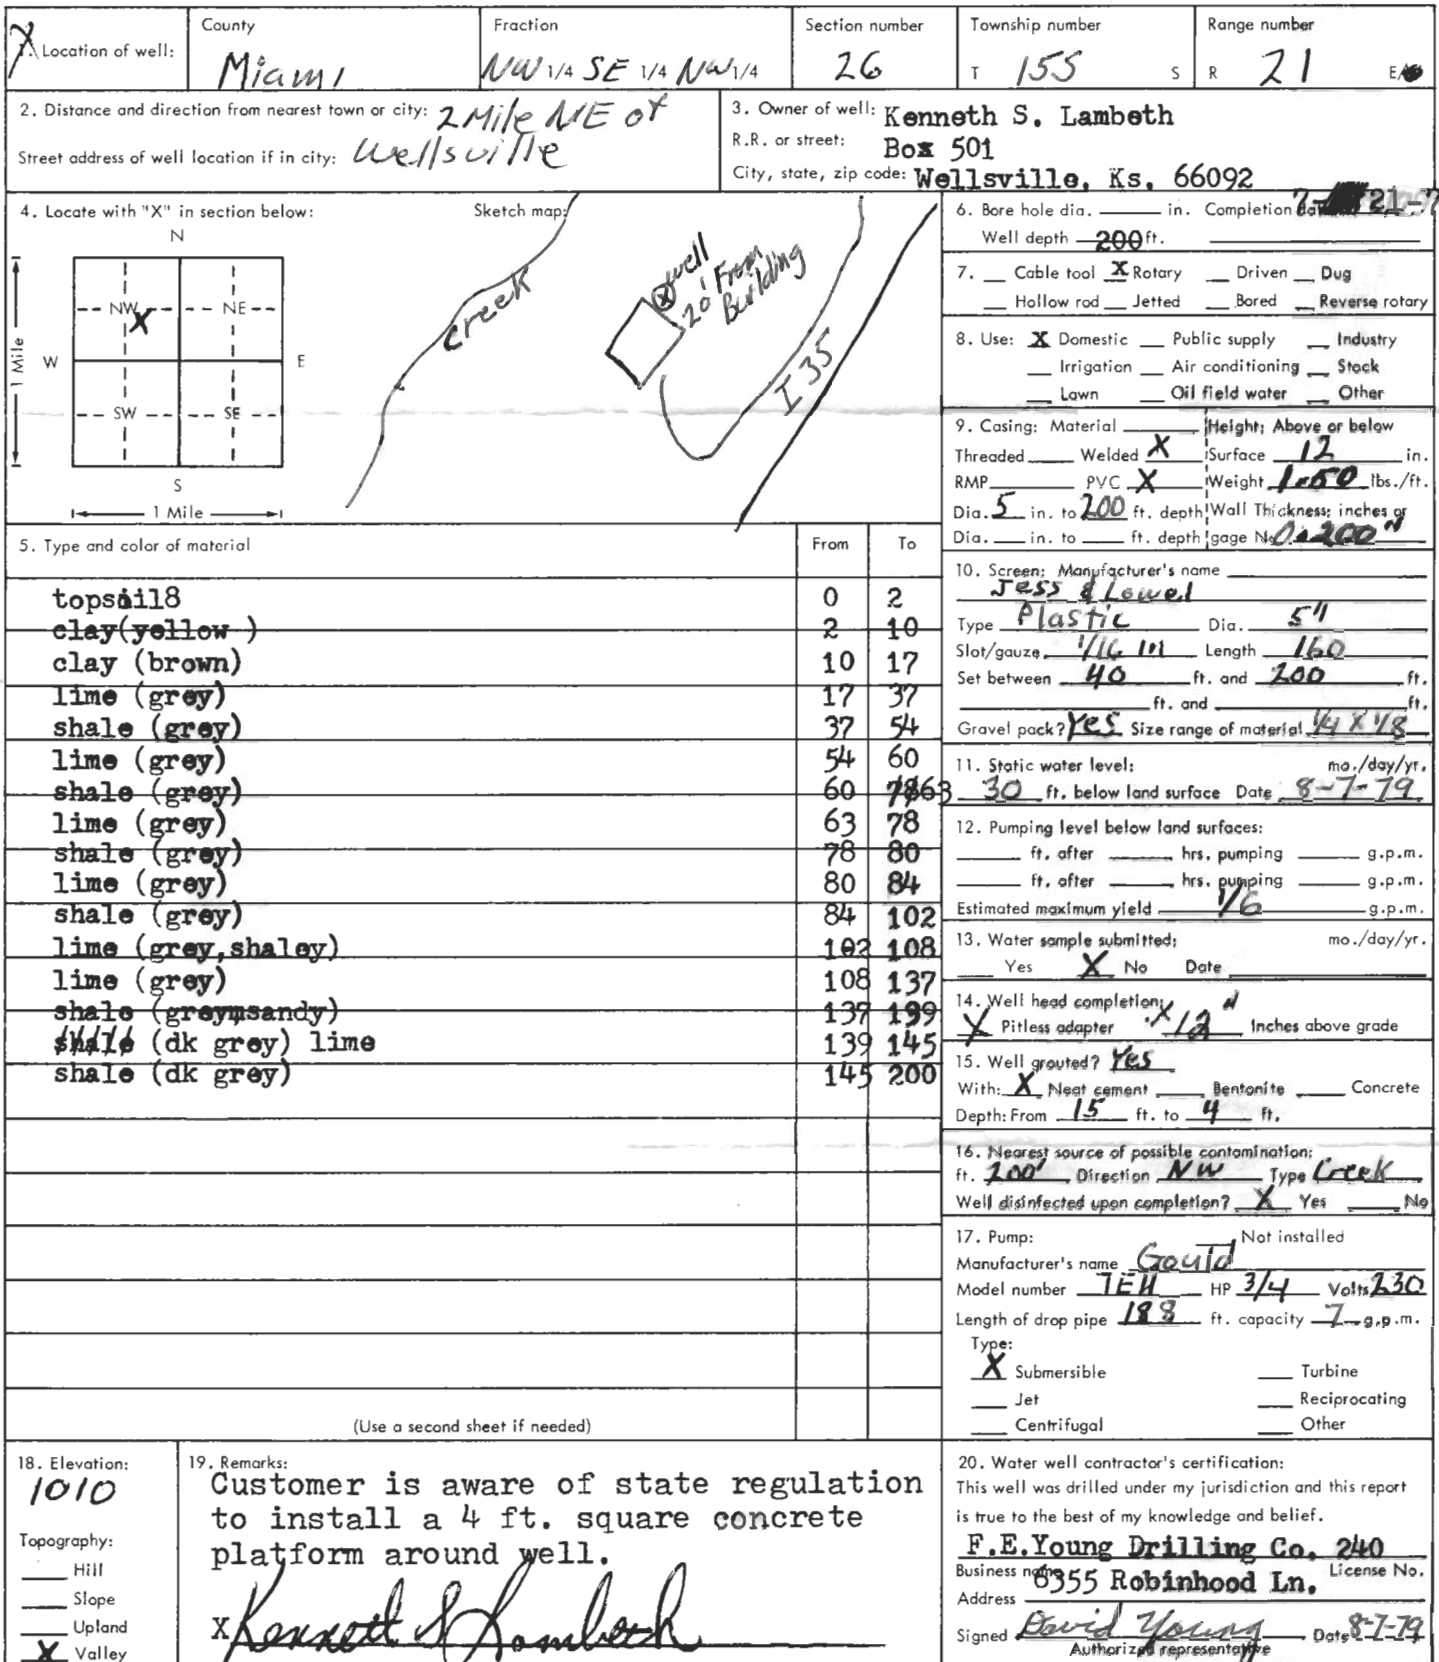 1. Location of well: County Miami Fraction NW 1/4 SE 1/4 NW 1/4 Section number 26 Township number T 15S S Range number R 21 E/W
2. Distance and direction from nearest town or city: 2 Mile NE of
Street address of well location if in city: Wellsville
3. Owner of well: Kenneth S. Lambeth
R.R. or street: Box 501
City, state, zip code: Wellsville, Ks. 66092
4. Locate with "X" in section below: Sketch map:
N
NW NE
X
W E
SW SE
S
1 Mile
1 Mile
creek
well
20' From
Building
I 35
5. Type and color of material From To
topsoil8 0 2
clay(yellow ) 2 10
clay (brown) 10 17
lime (grey) 17 37
shale (grey) 37 54
lime (grey) 54 60
shale (grey) 60 7863
lime (grey) 63 78
shale (grey) 78 80
lime (grey) 80 84
shale (grey) 84 102
lime (grey,shaley) 102 108
lime (grey) 108 137
shale (grey,sandy) 137 139
shale (dk grey) lime 139 145
shale (dk grey) 145 200
(Use a second sheet if needed)
6. Bore hole dia. in. Completion date 7- 21-7
Well depth 200 ft.
7. Cable tool X Rotary Driven Dug
Hollow rod Jetted Bored Reverse rotary
8. Use: X Domestic Public supply Industry
Irrigation Air conditioning Stock
Lawn Oil field water Other
9. Casing: Material Height: Above or below
Threaded Welded X Surface 12 in.
RMP PVC X Weight 1.50 lbs./ft.
Dia. 5 in. to 200 ft. depth Wall Thickness: inches or
Dia. in. to ft. depth gage No. 0.200"
10. Screen: Manufacturer's name
Jess & Lowel
Type Plastic Dia. 5"
Slot/gauze 1/16 in Length 160
Set between 40 ft. and 200 ft.
ft. and ft.
Gravel pack? Yes Size range of material 1/4 X 1/8
11. Static water level: mo./day/yr.
30 ft. below land surface Date 8-7-79
12. Pumping level below land surfaces:
ft. after hrs. pumping g.p.m.
ft. after hrs. pumping g.p.m.
Estimated maximum yield 1/6 g.p.m.
13. Water sample submitted: mo./day/yr.
Yes X No Date
14. Well head completion:
X Pitless adapter X 12" Inches above grade
15. Well grouted? Yes
With: X Neat cement Bentonite Concrete
Depth: From 15 ft. to 4 ft.
16. Nearest source of possible contamination:
ft. 200' Direction NW Type Creek
Well disinfected upon completion? X Yes No
17. Pump: Not installed
Manufacturer's name Gould
Model number 7EH HP 3/4 Volts 230
Length of drop pipe 188 ft. capacity 7 g.p.m.
Type:
X Submersible Turbine
Jet Reciprocating
Centrifugal Other
18. Elevation:
1010
Topography:
Hill
Slope
Upland
X Valley
19. Remarks:
Customer is aware of state regulation
to install a 4 ft. square concrete
platform around well.
X Kenneth S Lambeth
20. Water well contractor's certification:
This well was drilled under my jurisdiction and this report
is true to the best of my knowledge and belief.
F.E.Young Drilling Co. 240
Business name License No.
Address 6355 Robinhood Ln.
Signed David Young Date 8-7-79
Authorized representative